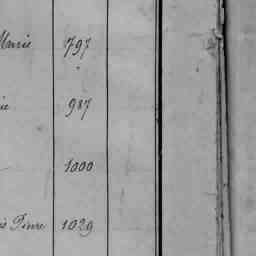 Marie 797
ie 987
1000
is Pierre 1029